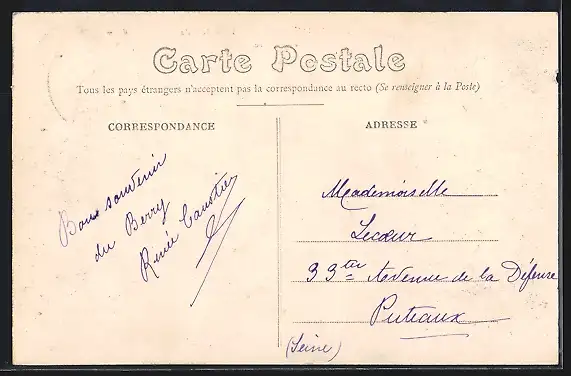 Carte Postale
Tous les pays étrangers n'acceptent pas la correspondance au recto (Se renseigner à la Poste)
CORRESPONDANCE
Bons souvenir
du Berry
Renée Caustier
ADRESSE
Mademoiselle
Lecœur
33 ter Avenue de la Défense
Puteaux
(Seine)